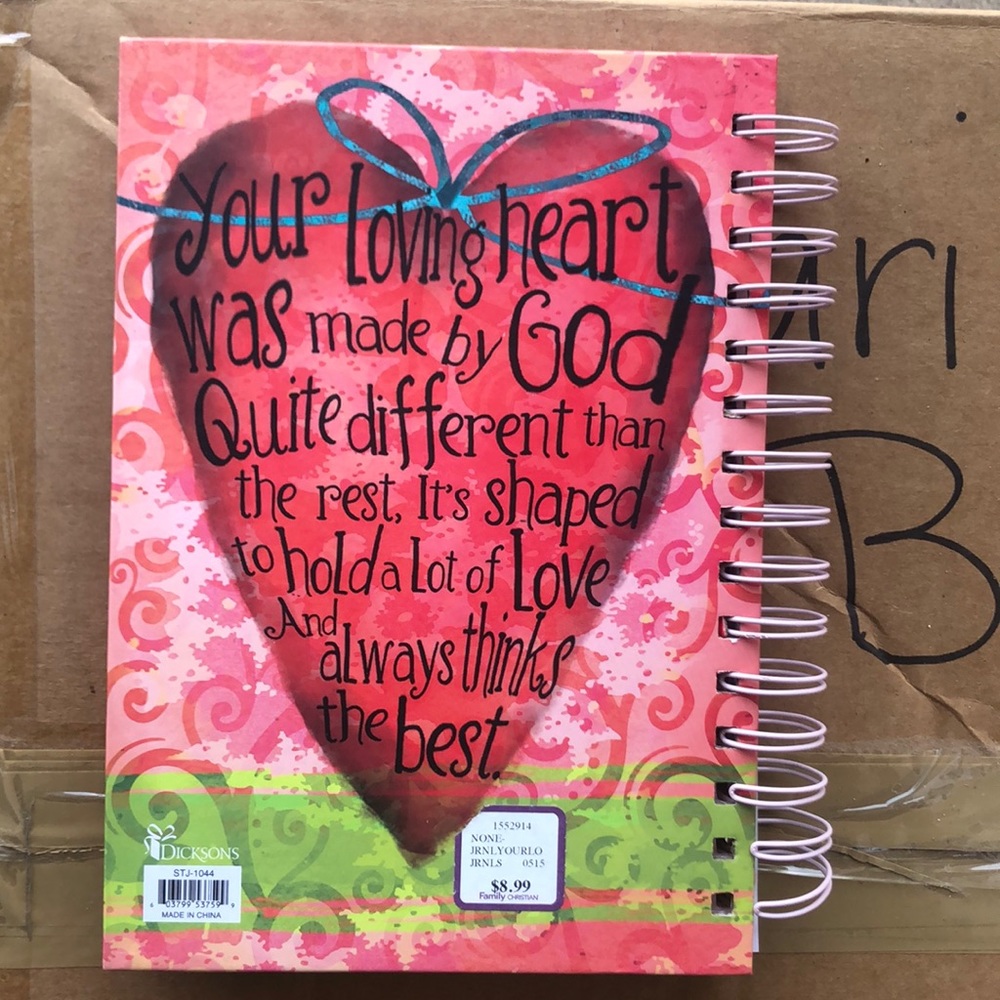 Your Loving heart
was made by God
Quite different than
the rest, It's shaped
to hold a Lot of Love
And
always thinks
the best.
DICKSONS
STJ-1044
6 03799 53759 9
MADE IN CHINA
1552914
NONE-
JRNLYOURLO
JRNLS 0515
$8.99
Family CHRISTIAN
B